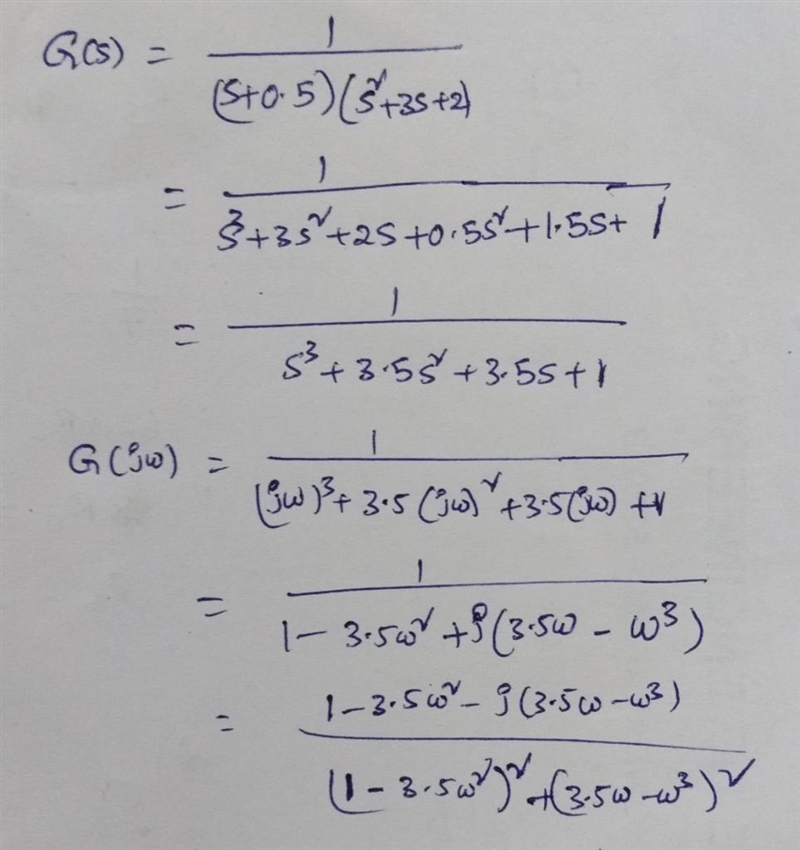 G(s) = 1 / (s+0.5)(s²+3s+2)
= 1 / s³+3s²+2s+0.5s²+1.5s+1
= 1 / s³+3.5s²+3.5s+1
G(jω) = 1 / (jω)³+3.5(jω)²+3.5(jω)+1
= 1 / 1-3.5ω²+j(3.5ω-ω³)
= 1-3.5ω²-j(3.5ω-ω³) / (1-3.5ω²)²+(3.5ω-ω³)²